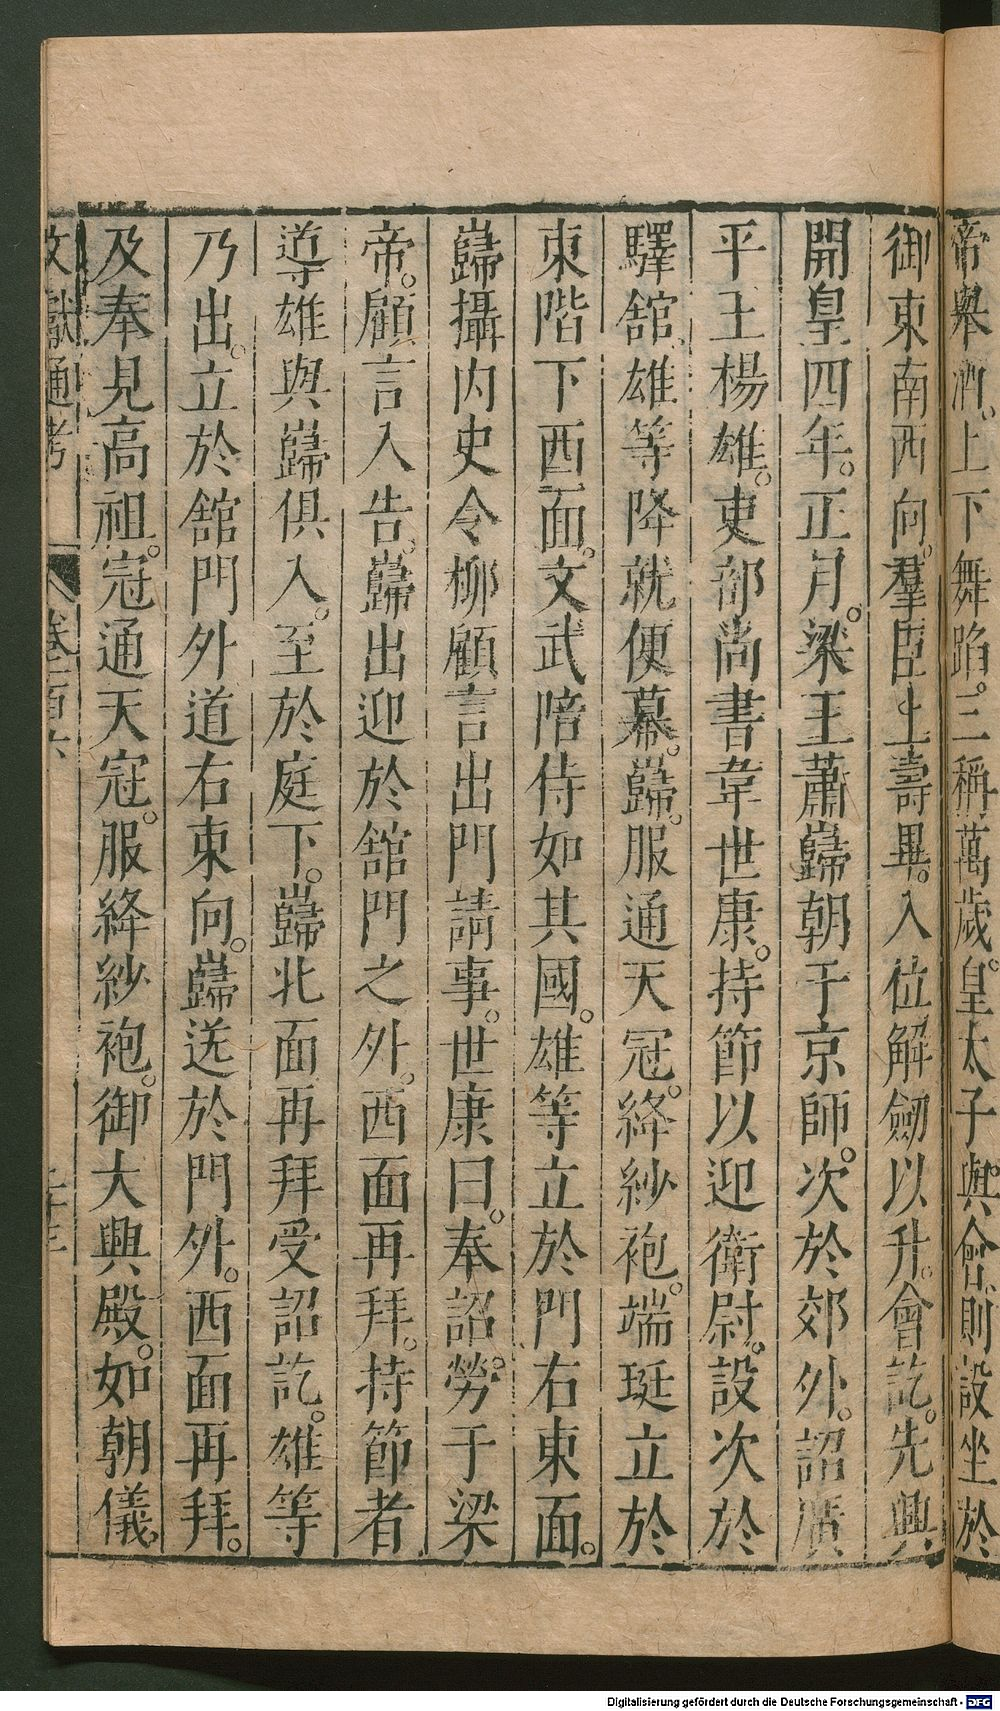 帝舉酒。上下舞蹈。三稱萬歲。皇太子與會。則設坐於
御東南西向。羣臣上壽畢。入位解劒以升。會訖。先興
開皇四年。正月。梁王蕭巋朝于京師。次於郊外。詔廣
平王楊雄。吏部尚書韋世康。持節以迎衛尉。設次於
驛舘雄等降就便幕。巋。服通天冠。絳紗袍。端珽立於
東階下西面。文武陪侍如其國。雄等立於門右東面。
巋攝內史令柳顧言出門請事。世康曰。奉詔。勞于梁
帝。顧言入告。巋出迎於舘門之外。西面再拜。持節者
導雄與巋俱入。至於庭下。巋北面再拜受詔訖。雄等
乃出。立於舘門外道右東向。巋送於門外。西面再拜。
及奉見高祖。冠通天冠。服絳紗袍。御大興殿。如朝儀。
文獻通考 卷一百六
Digitalisierung gefördert durch die Deutsche Forschungsgemeinschaft - DFG